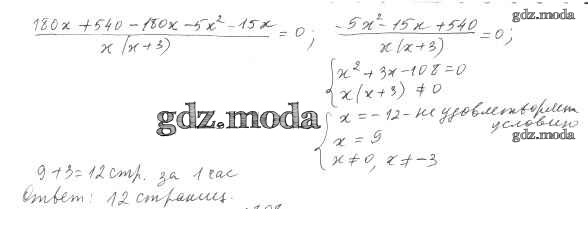 (180x + 540 - 180x - 5x² - 15x) / (x(x+3)) = 0; (-5x² - 15x + 540) / (x(x+3)) = 0;
gdz.moda
{ x² + 3x - 108 = 0
x(x+3) ≠ 0
gdz.moda
{ x = -12 - не удовлетворяет
условию
x = 9
gdz.moda
x ≠ 0, x ≠ -3
9+3=12 стр. за 1 час
Ответ: 12 страниц.